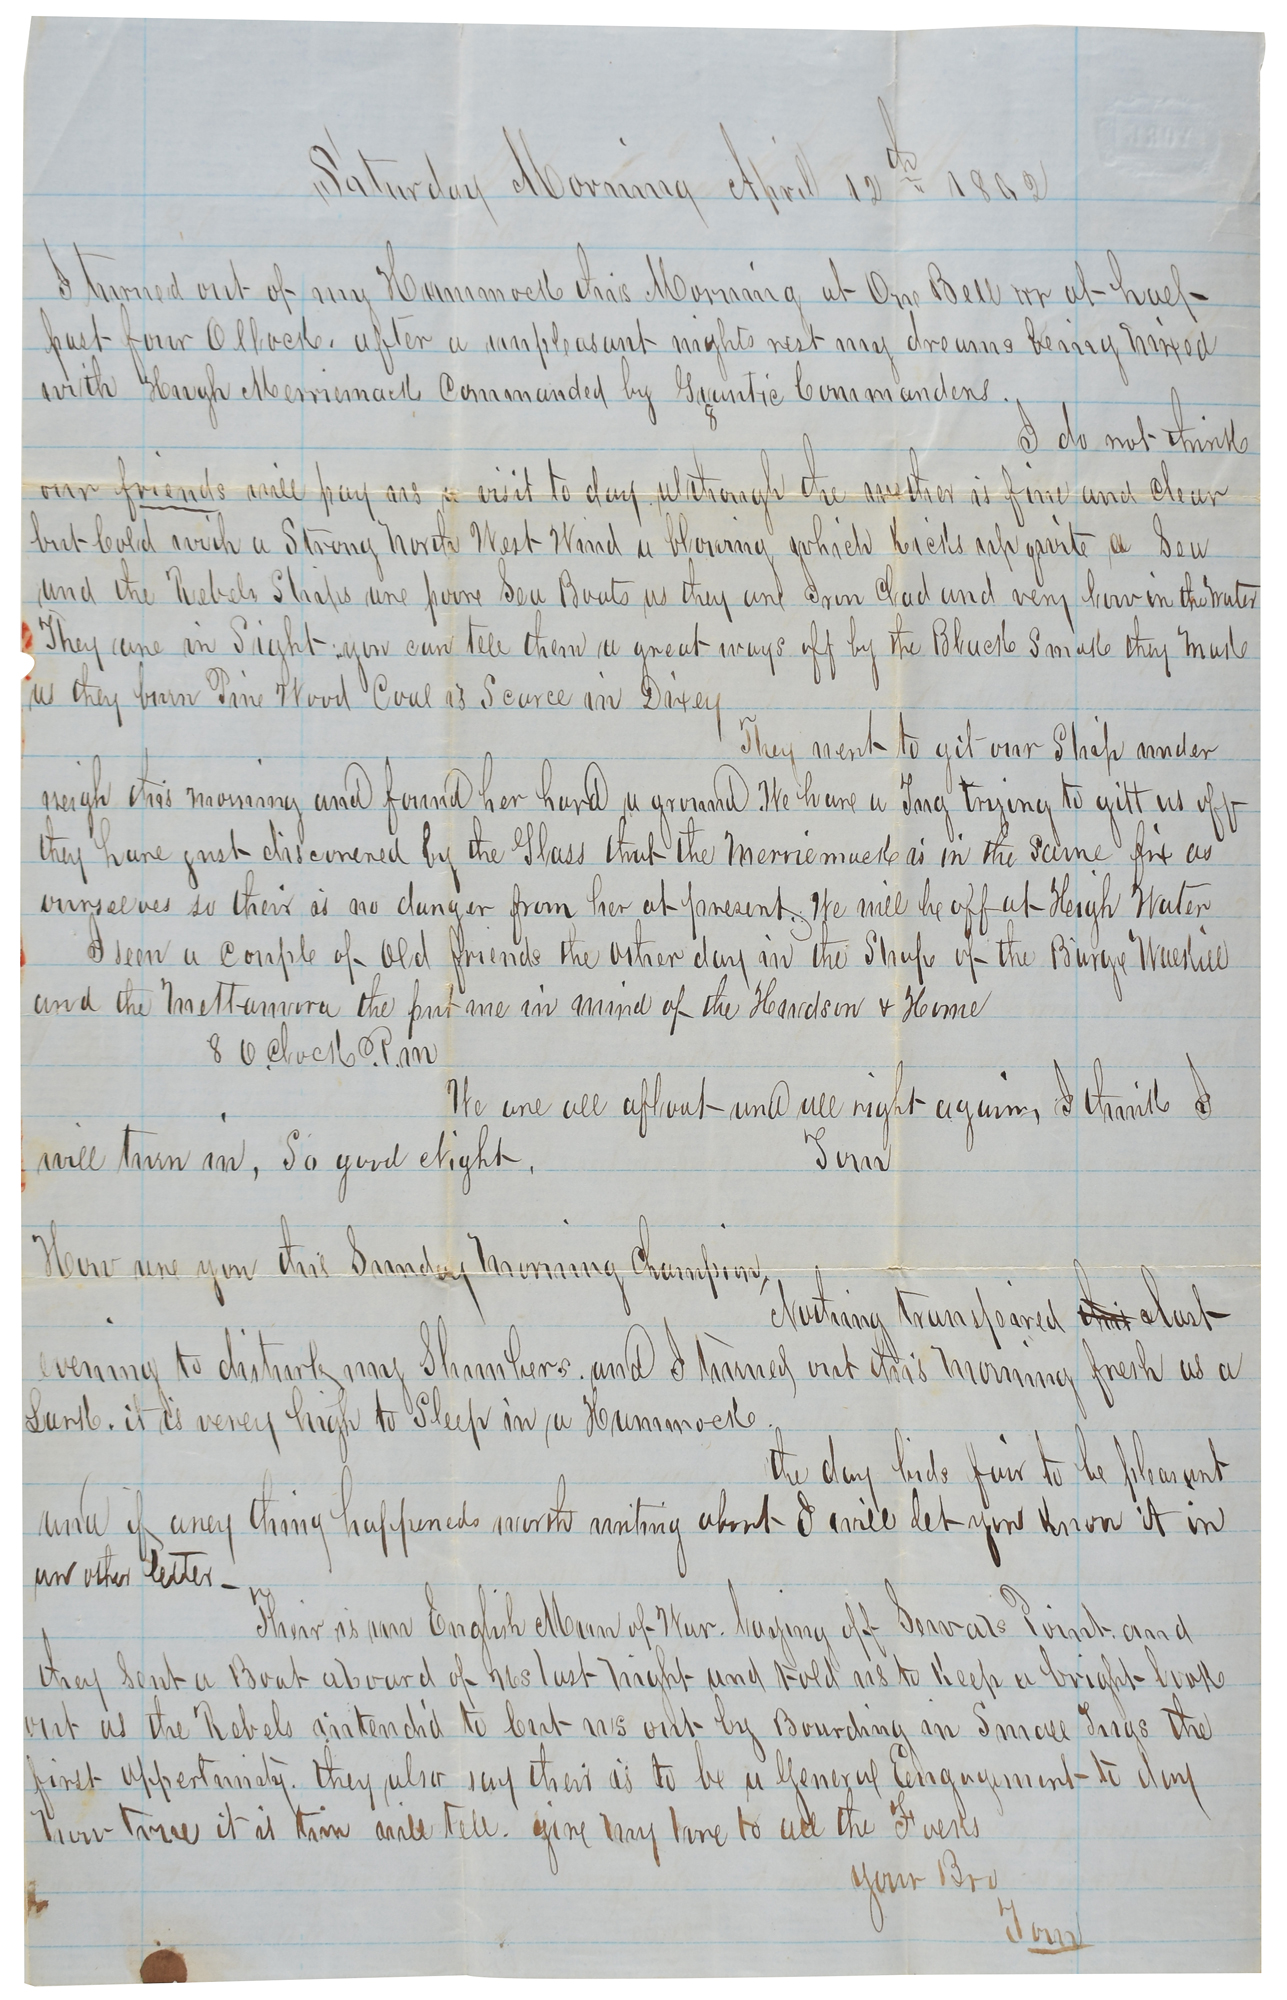 Saturday Morning April 12th 1862
I turned out of my Hammock this Morning at One Bell or at half
past four Ollock. after a unpleasant nights rest my dreams being mixed
with Hugh Merriemack Commanded by Gigantic Commanders.
I do not think
our friends will pay us a visit to day although the wether is fine and clear
but Cold with a Strong North West Wind a blowing which kicks up quite a Sea
and the Rebels Ships are poore Sea Boats as they are Iron Clad and very low in the Water
They are in Sight. you can tell them a great ways off by the Black Smoke they Make
as they burn Pine Wood Coal is Scarce in Dixey
They went to git our Ship under
weigh this morning and found her hard a ground. We have a Tug trying to gitt us off
they have just discovered by the Glass that the Merriemack is in the Same fix as
ourselves so their is no danger from her at present. We will be off at High Water
I seen a couple of Old friends the other day in the Shape of the Barge Walkill
and the Mettamora the put me in mind of the Hudson & Home
8 O.Clock P.m
We are all afloat and all right again, I think I
will turn in, So good Night. Tom
How are you this Sunday Morning Champion,
Nothing transpired this last
evening to disturb my Slumbers. and I turned out this morning fresh as a
Lark. it is verey high to Sleep in a Hammock.
the day bids fair to be pleasant
and if aney thing happeneds worth writing about I will let you know it in
an other letter -
Their is an English Man of War. laying off Sewals Point. and
they Sent a Boat aboard of us last night and told us to Keep a bright look
out as the Rebels intend'd to Cut us out by Boarding in Small Tugs the
first oppertunity. they also say their is to be a General Eengagement to day
how true it is tim will tell. give my love to all the Foeks
your Bro
Tom